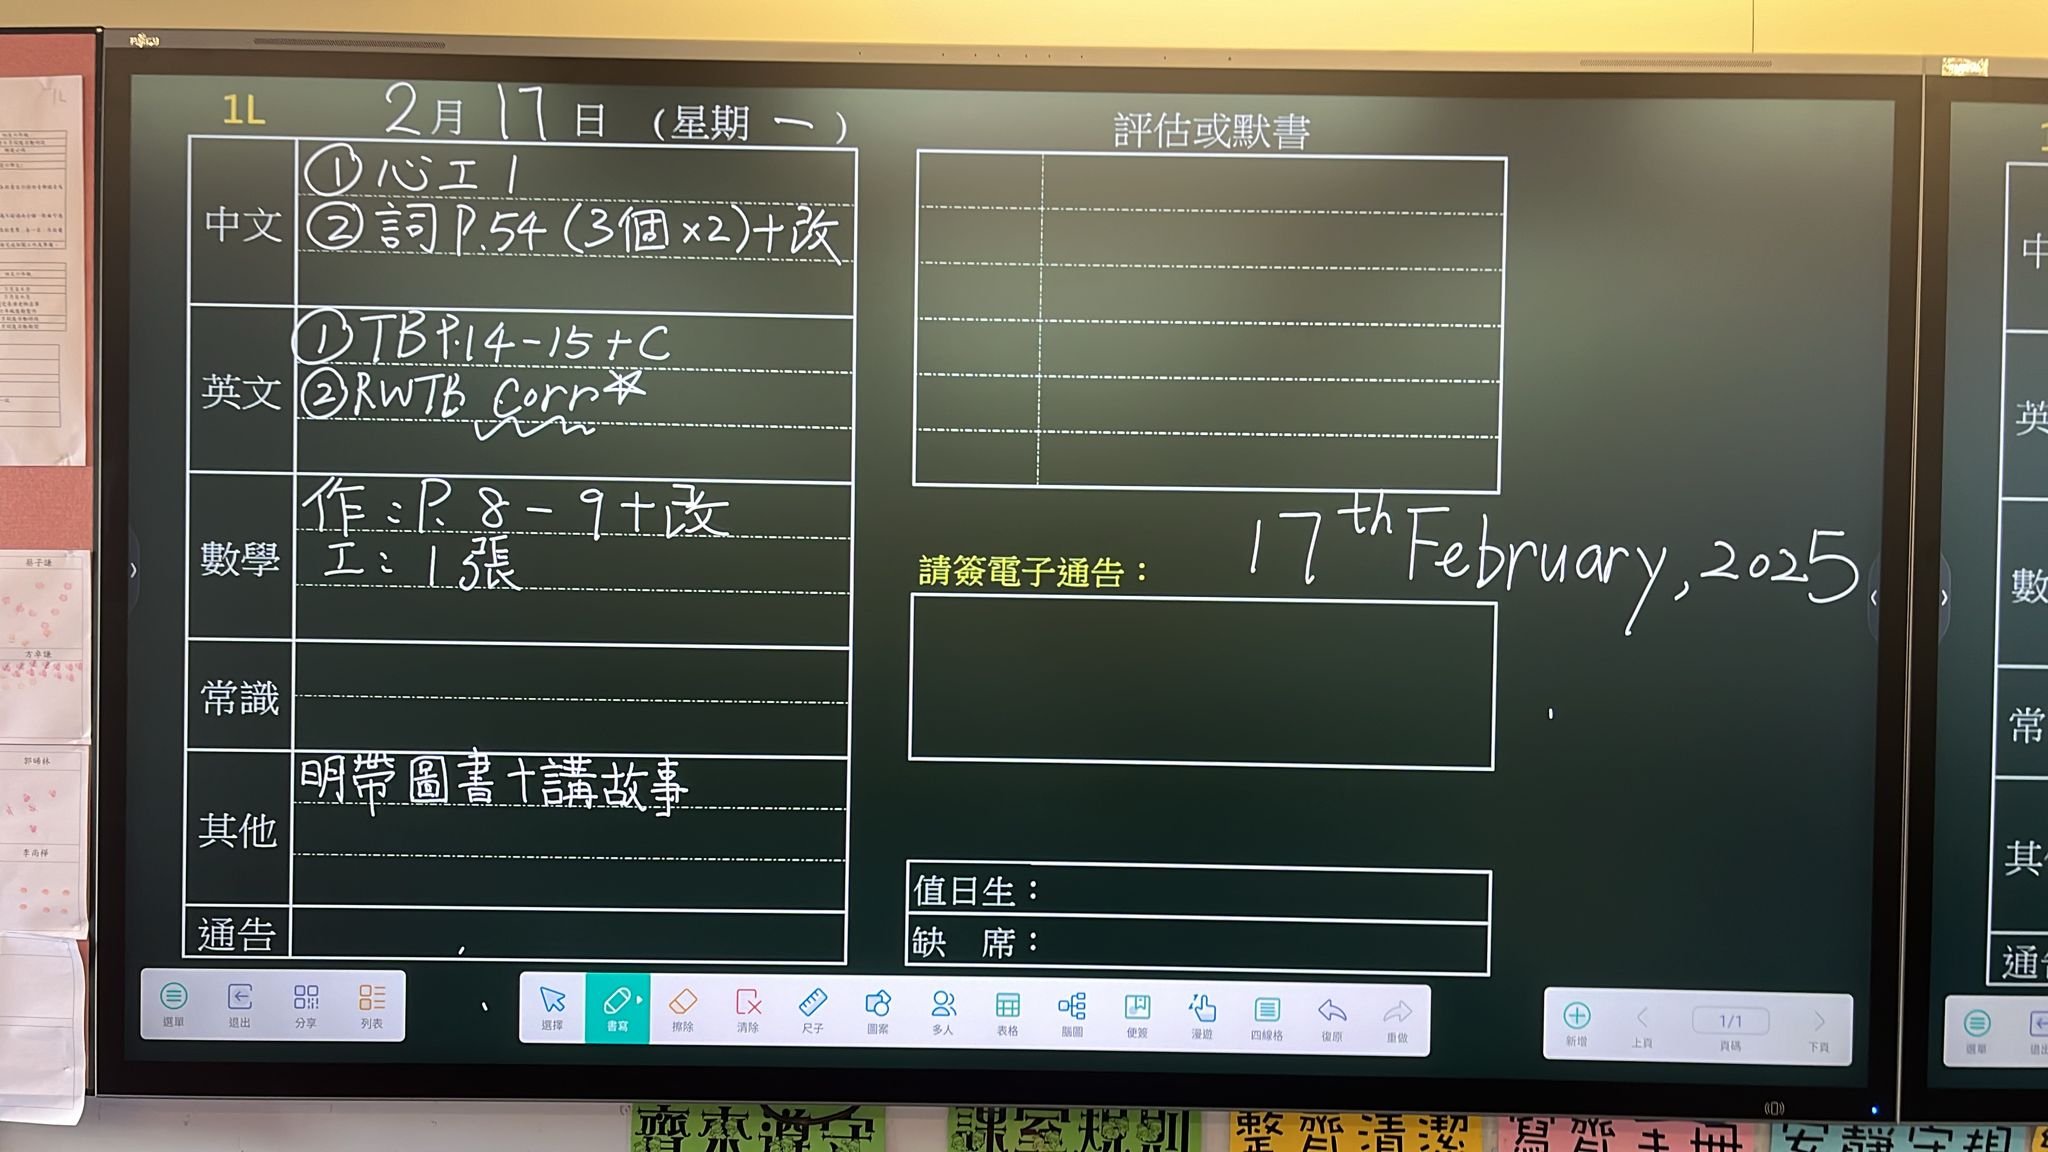 1L
2月17日 (星期一)
中文
①心工1
②詞P.54(3個×2)+改
英文
①TB P.14-15+C
②RWTB Corr☆
數學
作:P.8-9+改
工:1張
常識
其他
明帶圖書+講故事
通告
評估或默書
17th February, 2025
請簽電子通告:
值日生:
缺 席:
選單 退出 分享 列表
選擇 書寫 擦除 清除 尺子 圖案 多人 表格 腦圖 便簽 漫遊 四線格 復原 重做
新增 上頁 1/1 頁碼 下頁
中
英
數
常
其
通告
選單
1L
郭晞林
李尚樺
課室規則
整齊清潔
寫齊手冊
安靜守規